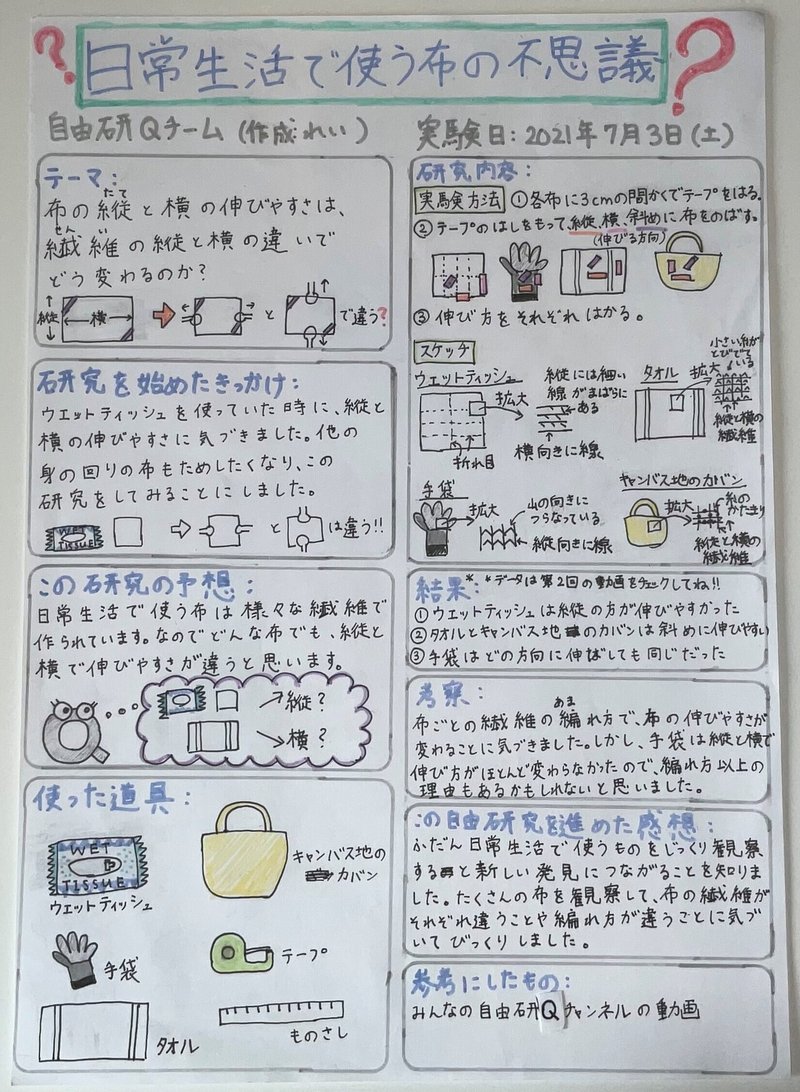 ?
日常生活で使う布の不思議
?
自由研Qチーム (作成れい)
実験日: 2021年7月3日(土)
テーマ:
布の縦と横の伸びやすさは、
たて
繊維の縦と横の違いで
せん い
どう変わるのか?
縦
横
と
で違う?
研究を始めたきっかけ:
ウエットティッシュを使っていた時に、縦と
横の伸びやすさに気づきました。他の
身の回りの布もためしたくなり、この
研究をしてみることにしました。
WET
TISSUE
と
は違う!!
この研究の予想:
日常生活で使う布は様々な繊維で
作られています。なのでどんな布でも、縦と
横で伸びやすさが違うと思います。
縦?
横?
使った道具:
WET
TISSUE
ウェットティッシュ
キャンバス地の
カバン
手袋
テープ
タオル
ものさし
研究内容:
実験方法 ①各布に3cmの間かくでテープをはる。
②テープのはしをもって、縦、横、斜めに布をのばす。
(伸びる方向)
③伸び方をそれぞれはかる。
スケッチ
ウェットティッシュ
拡大
縦には細い
線がまばらに
ある
横向きに線
折れ目
タオル
拡大
小さい糸が
とびでて
いる
縦と横の
繊維
手袋
拡大
山の向きに
つらなっている
縦向きに線
キャンバス地のカバン
拡大
糸の
かたまり
縦と横の
繊維
結果:* *データは第2回の動画をチェックしてね!!
①ウエットティッシュは縦の方が伸びやすかった
②タオルとキャンバス地のカバンは斜めに伸びやすい
③手袋はどの方向に伸ばしても同じだった
考察:
布ごとの繊維の編れ方で、布の伸びやすさが
あま
変わることに気づきました。しかし、手袋は縦と横で
伸び方がほとんど変わらなかったので、編れ方以上の
理由もあるかもしれないと思いました。
この自由研究を進めた感想:
ふだん日常生活で使うものをじっくり観察
すると新しい発見につながることを知りま
した。たくさんの布を観察して、布の繊維が
それぞれ違うことや編れ方が違うごとに気づ
いてびっくりしました。
参考にしたもの:
みんなの自由研Qチャンネルの動画